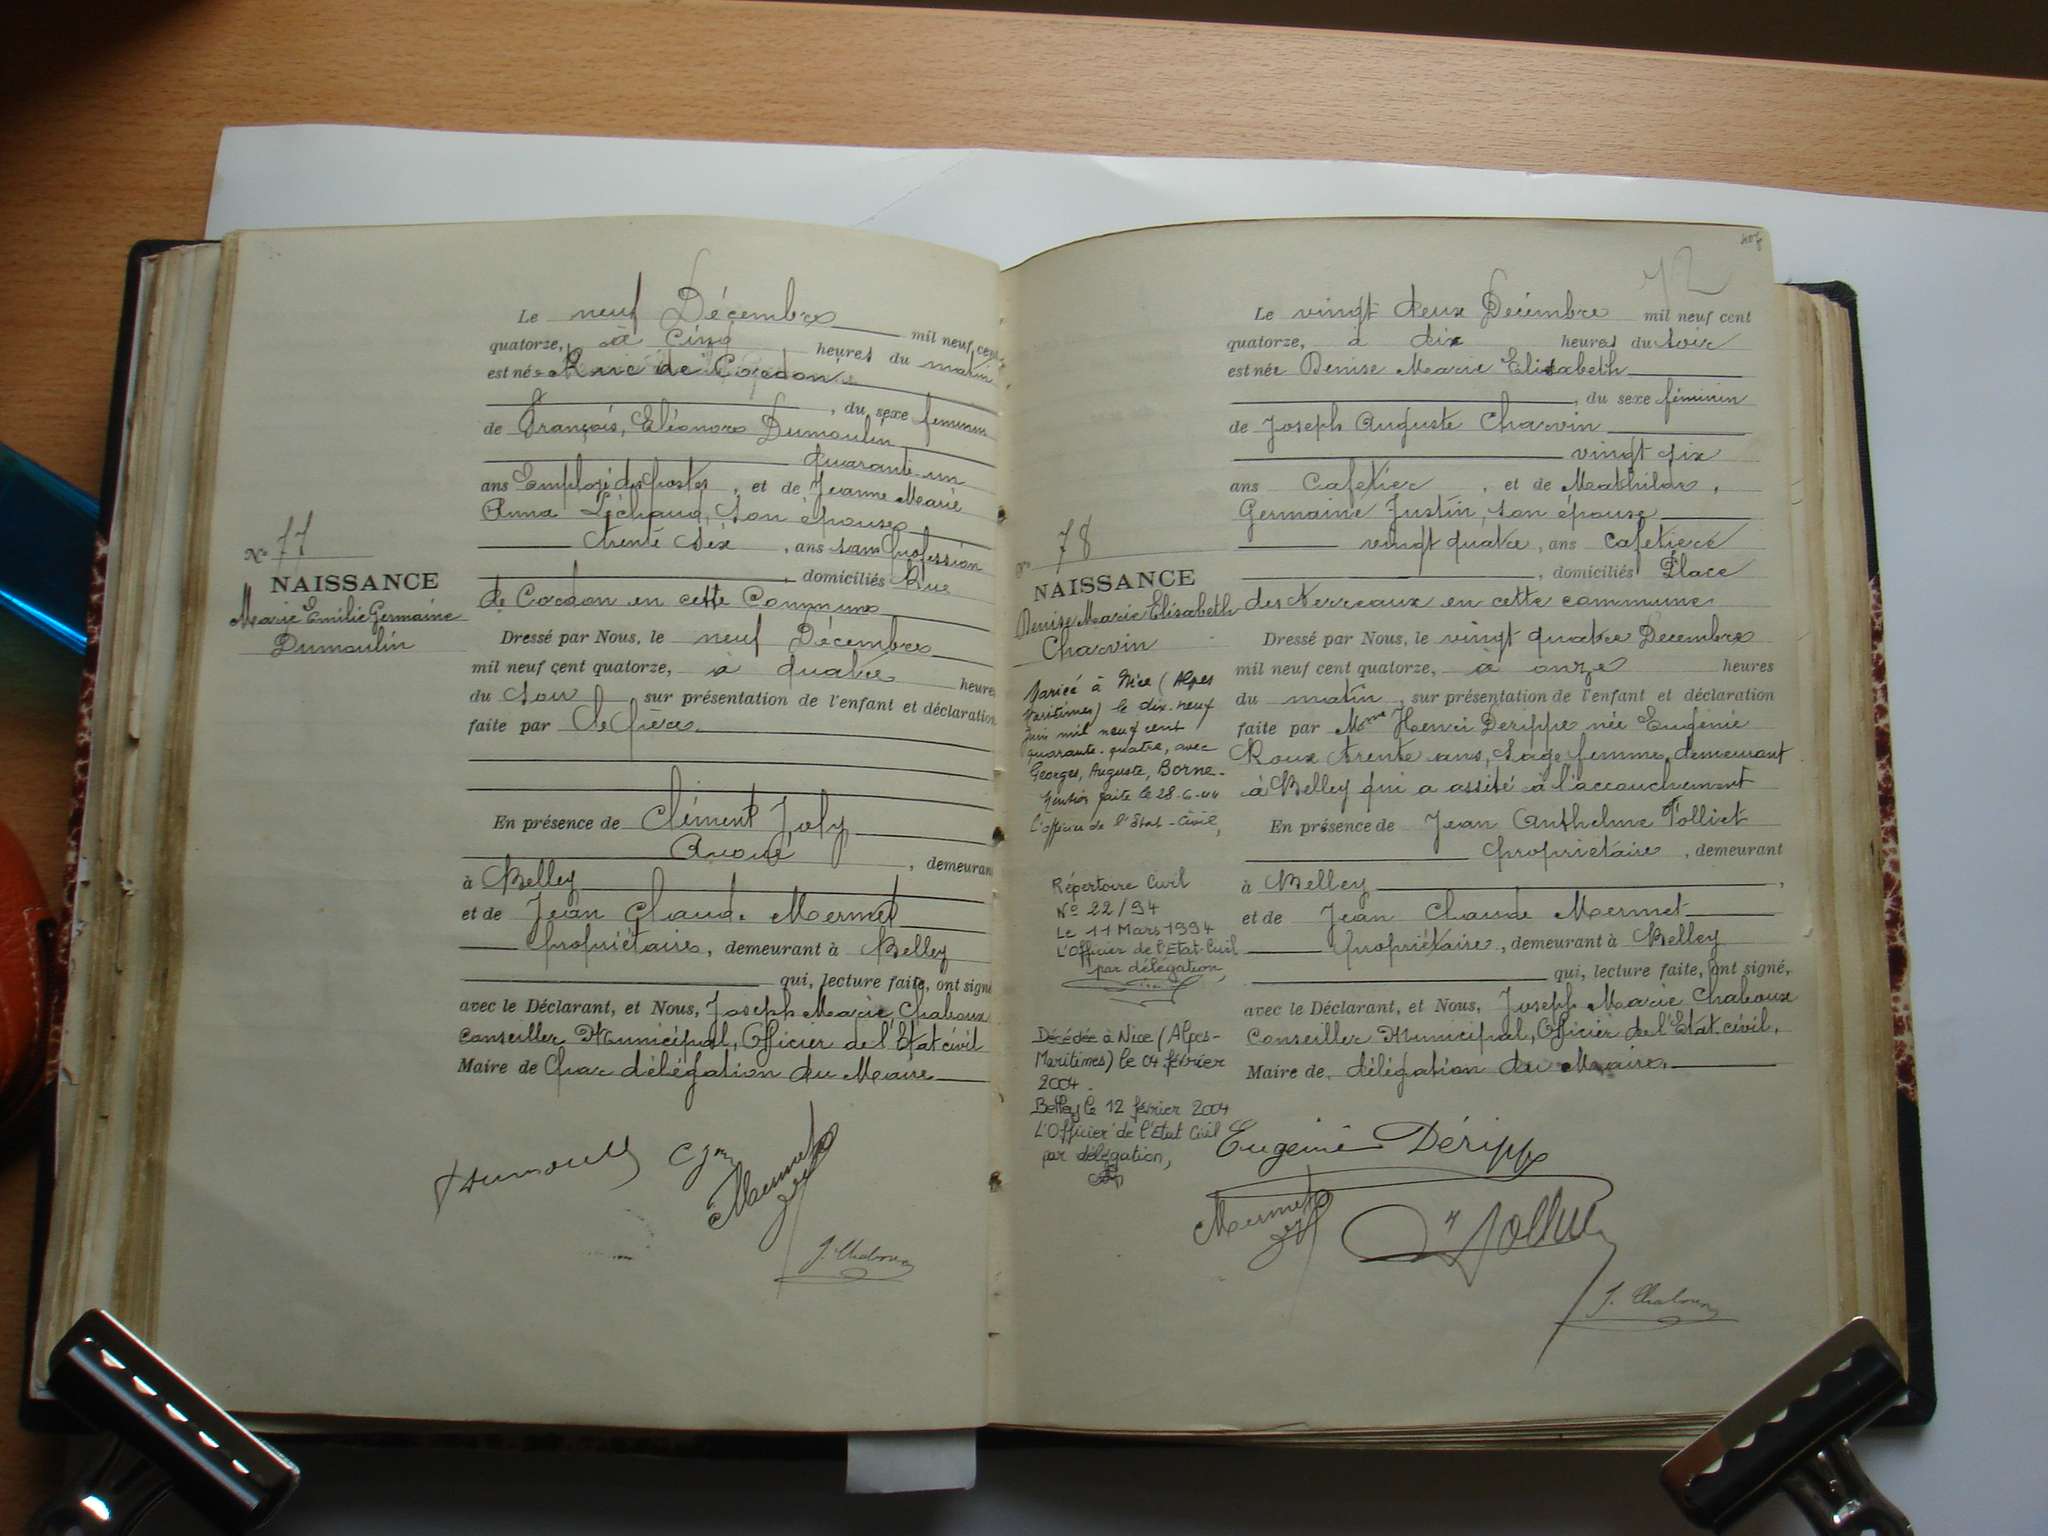 Le neuf Décembre mil neuf cent
quatorze, à cinq heures du matin
est née Rue de Cordon
, du sexe féminin
de François, Eléonore Dumoulin
quarante un
ans Employé des postes, et de Jeanne Marie
Anna Léchaud, son épouse
trente six, ans sans profession
domiciliés Rue
de Cordon en cette Commune
Dressé par Nous, le neuf Décembre
mil neuf cent quatorze, à quatre heures
du soir sur présentation de l'enfant et déclaration
faite par le père
En présence de Clément Joly
Avoué, demeurant
à Belley
et de Jean Claude Mermet
propriétaire, demeurant à Belley
qui, lecture faite, ont signé
avec le Déclarant, et Nous, Joseph Marie Chaboux
Conseiller Municipal, Officier de l'Etat civil
Maire de par délégation du Maire
No 77
NAISSANCE
Marie Emilie Germaine
Dumoulin
Dumoulin
Mermet
J. Chaboux
72
Le vingt deux Décembre mil neuf cent
quatorze, à dix heures du soir
est née Denise Marie Elisabeth
, du sexe féminin
de Joseph Auguste Charvin
vingt six
ans Cafetier, et de Mathilde,
Germaine Justin, son épouse
vingt quatre, ans cafetière
, domiciliés Place
des Terreaux en cette commune
Dressé par Nous, le vingt quatre Décembre
mil neuf cent quatorze, à onze heures
du matin, sur présentation de l'enfant et déclaration
faite par Mme Henri Derippe née Eugénie
Roux trente ans, sage femme, demeurant
à Belley qui a assité à l'accouchement
En présence de Jean Anthelme Tolliet
propriétaire, demeurant
à Belley,
et de Jean Claude Mermet
propriétaire, demeurant à Belley
qui, lecture faite, ont signé,
avec le Déclarant, et Nous, Joseph Marie Chaboux
Conseiller Municipal, Officier de l'Etat civil,
Maire de délégation du Maire.
No 78
NAISSANCE
Denise Marie Elisabeth
Charvin
Mariée à Nice (Alpes
Maritimes) le dix-neuf
Juin mil neuf cent
quarante-quatre, avec
Georges, Auguste, Borne.
Mention faite le 28-6-44
L'officier de l'Etat-Civil,
Répertoire Civil
No 22/94
Le 11 Mars 1994
L'Officier de l'Etat Civil
par délégation,
Décédée à Nice (Alpes-
Maritimes) le 04 février
2004.
Belley le 12 février 2004
L'Officier de l'Etat Civil
par délégation,
Eugénie Dérippe
Mermet
Tolliet
J. Chaboux